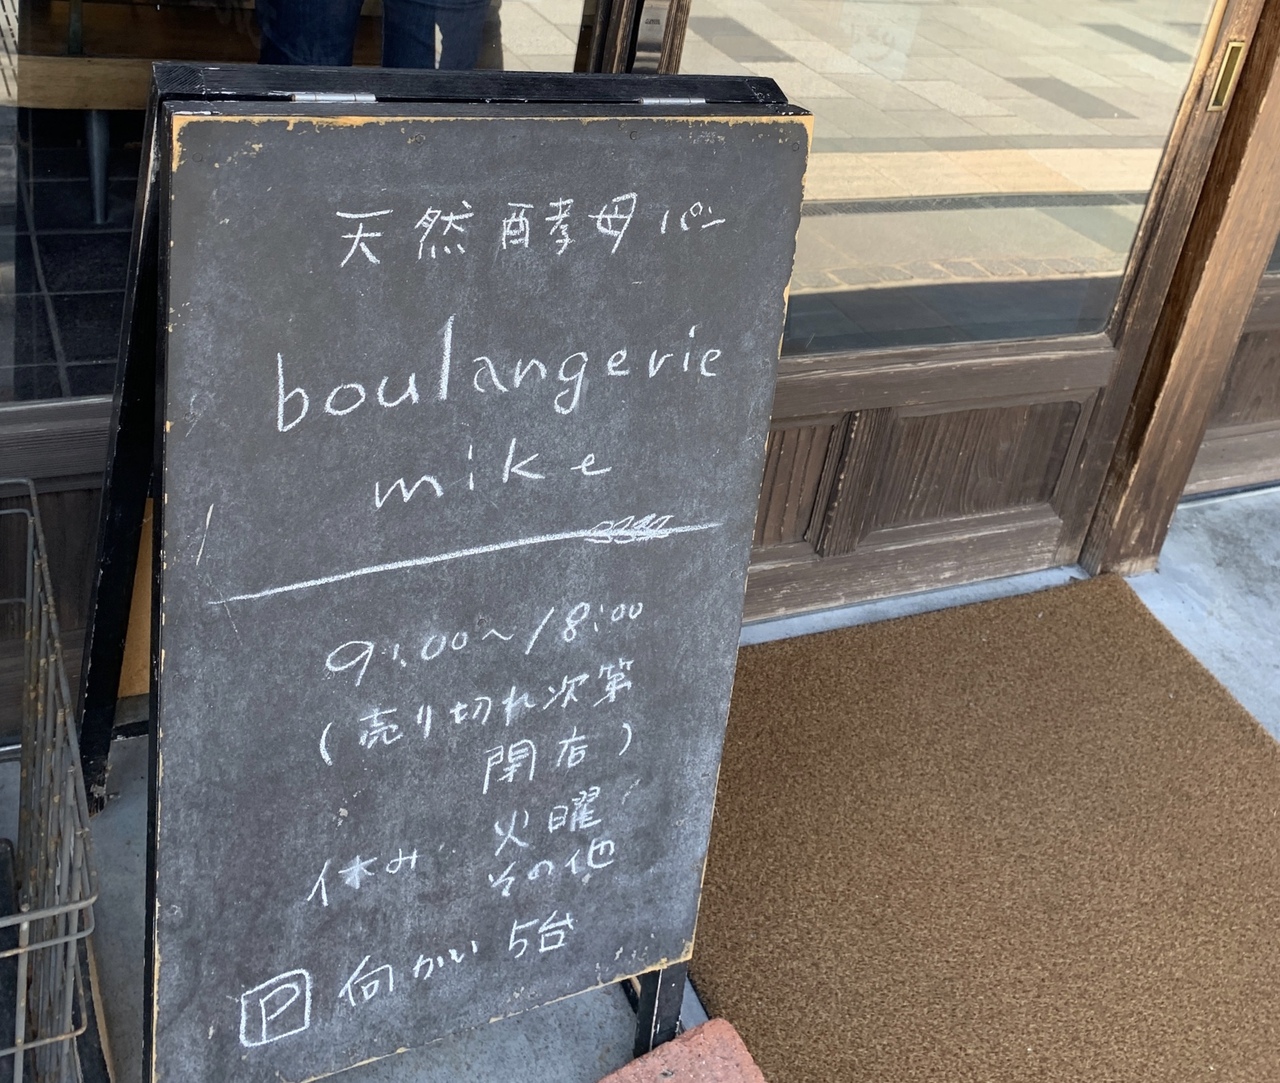 天然酵母パン
boulangerie
mike
9:00~18:00
(売り切れ次第
閉店)
休み 火曜
その他
P 向かい 5台